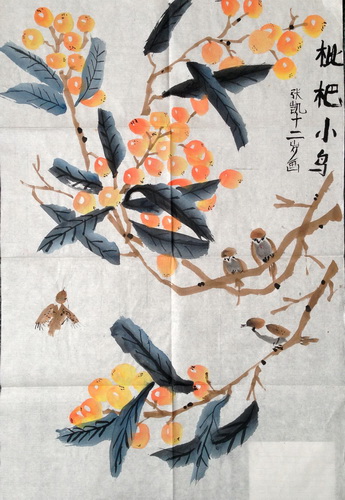 枇杷小鸟
张凯十二岁画